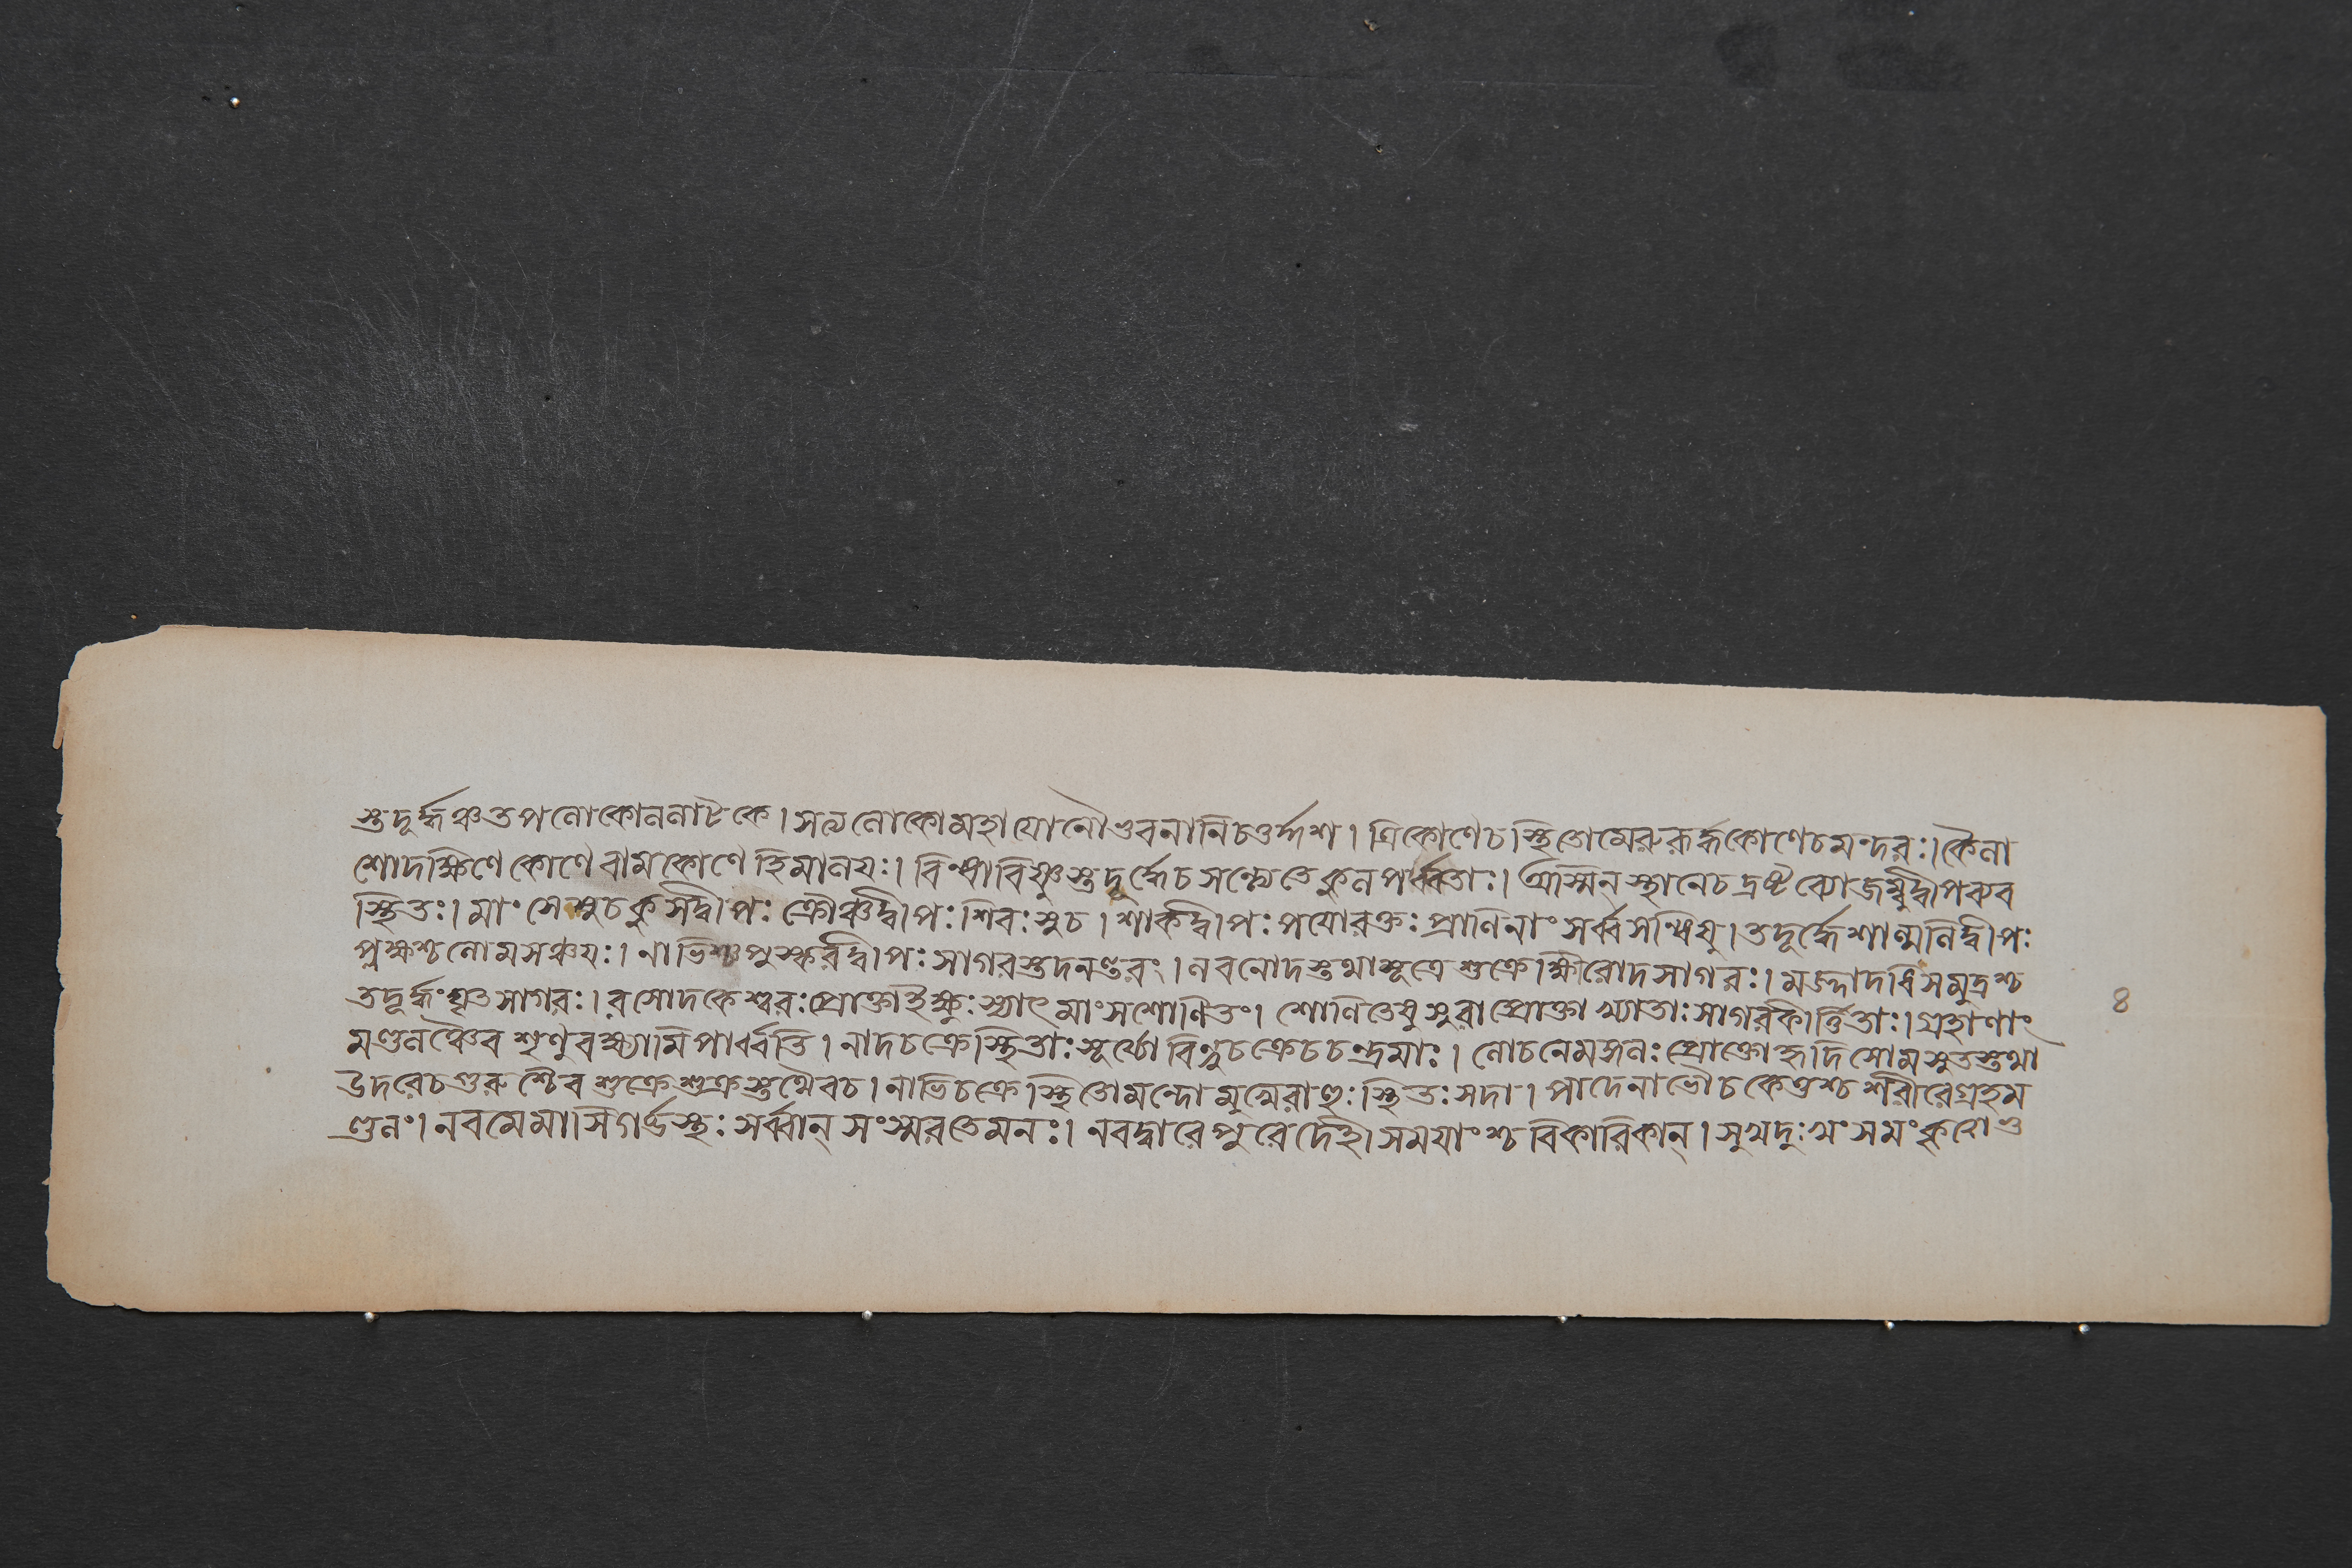 স্তদূর্দ্ধঞ্চতপলোকোললাটকে। সত্যলোকোমহাযোনৌভুবনানিচতুর্দ্দশ। ত্রিকোণেচস্থিতোমেরুরূর্দ্ধকোণেচমন্দরঃ। কৈলা
শোদক্ষিণে কোণে বামকোণে হিমালয়ঃ। বিন্ধ্যবিষ্ণুস্তদূর্দ্ধেচ সপ্তৈতেকুলপর্ব্বতাঃ। অস্মিন্ স্থানেচ দ্রষ্টব্যোজম্বুদ্বীপব্যব
স্থিতঃ। মাংসেসুচকুসদ্বীপঃ ক্রৌঞ্চদ্বীপঃ শিবঃসুচ। শাকদ্বীপঃ পয়োরক্তঃ প্রাণিনাং সর্ব্বসন্ধিষু। তদূর্দ্ধেশাল্মলিদ্বীপঃ
প্লক্ষশ্চলোমসঞ্চয়ঃ। নাভিশ্চপুস্করদ্বীপঃ সাগরস্তদনন্তরং। লবণোদস্তথামূত্রে শুক্রেক্ষীরোদসাগরঃ। মজ্জাদধিসমুদ্রশ্চ
তদূর্দ্ধং ঘৃতসাগরঃ। বসোদকেশ্বরঃ প্রোক্তাইক্ষুঃ স্যাৎ মাংসশোণিতং। শোণিতেষু সুরাপ্রোক্তা খ্যাতাঃ সাগরকীর্ত্তিতাঃ। গ্রহাণাং
মণ্ডলঞ্চৈব শৃণুবক্ষ্যামি পার্ব্বতি। নাদচক্রেস্থিতাঃ সূর্য্যো বিন্দুচক্রেচচন্দ্রমাঃ। লোচনেমঙ্গলঃ প্রোক্তোহৃদিসোমসুতস্তথা
উদরেচগুরুশ্চৈব শুক্রে শুক্রস্তথৈবচ। নাভিচক্রে স্থিতোমন্দোমুখেরাহুঃ স্থিতঃ সদা। পাদেনাভৌচকেতুশ্চ শরীরেগ্রহম
ণ্ডলং। নবমেমাসিগর্ভস্থঃ সর্ব্বান্ সংস্মরতেমনঃ। নবদ্বারেপুরেদেহী সময়াংশ্চ বিকারিকান্। সুখদুঃখং সমং
৪